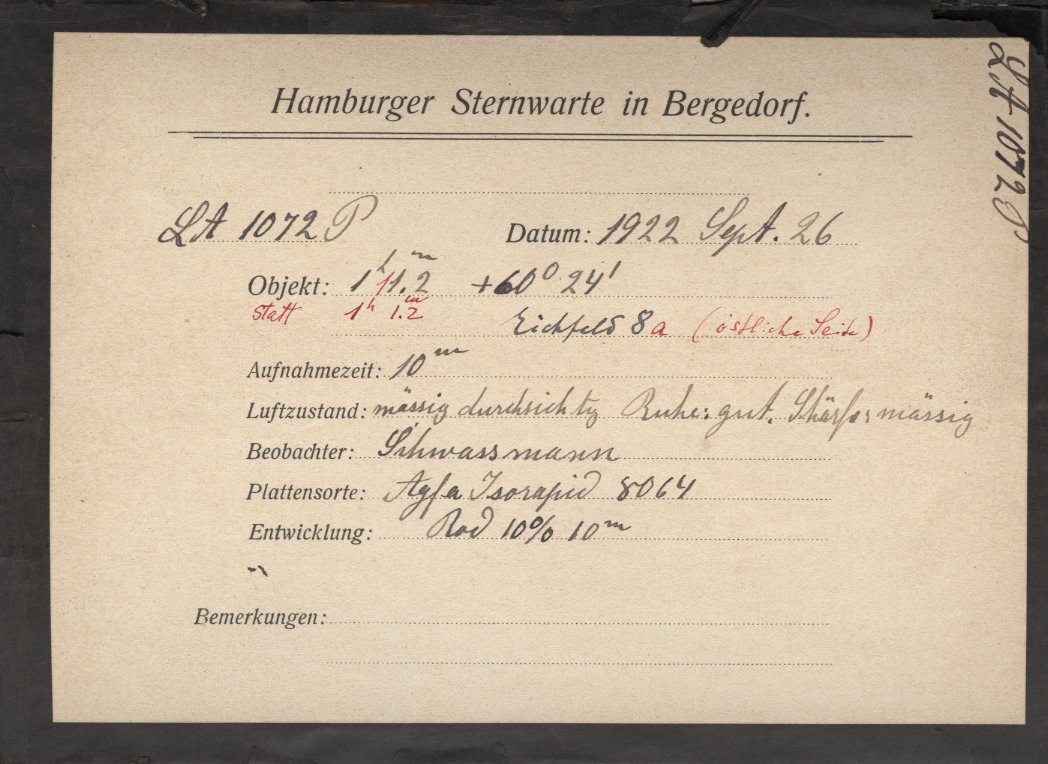 Hamburger Sternwarte in Bergedorf.
LA 1072 P
Datum: 1922 Sept. 26
Objekt: 1ʰ 11.2ᵐ +60° 24'
statt 1ʰ 1.2ᵐ
Eichfeld 8a (östliche Seite)
Aufnahmezeit: 10ᵐ
Luftzustand: mässig durchsichtig Ruhe: gut. Schärfe: mässig
Beobachter: Schwassmann
Plattensorte: Agfa Isorapid 8064
Entwicklung: Rod 10% 10ᵐ
Bemerkungen:
LA 1072 P